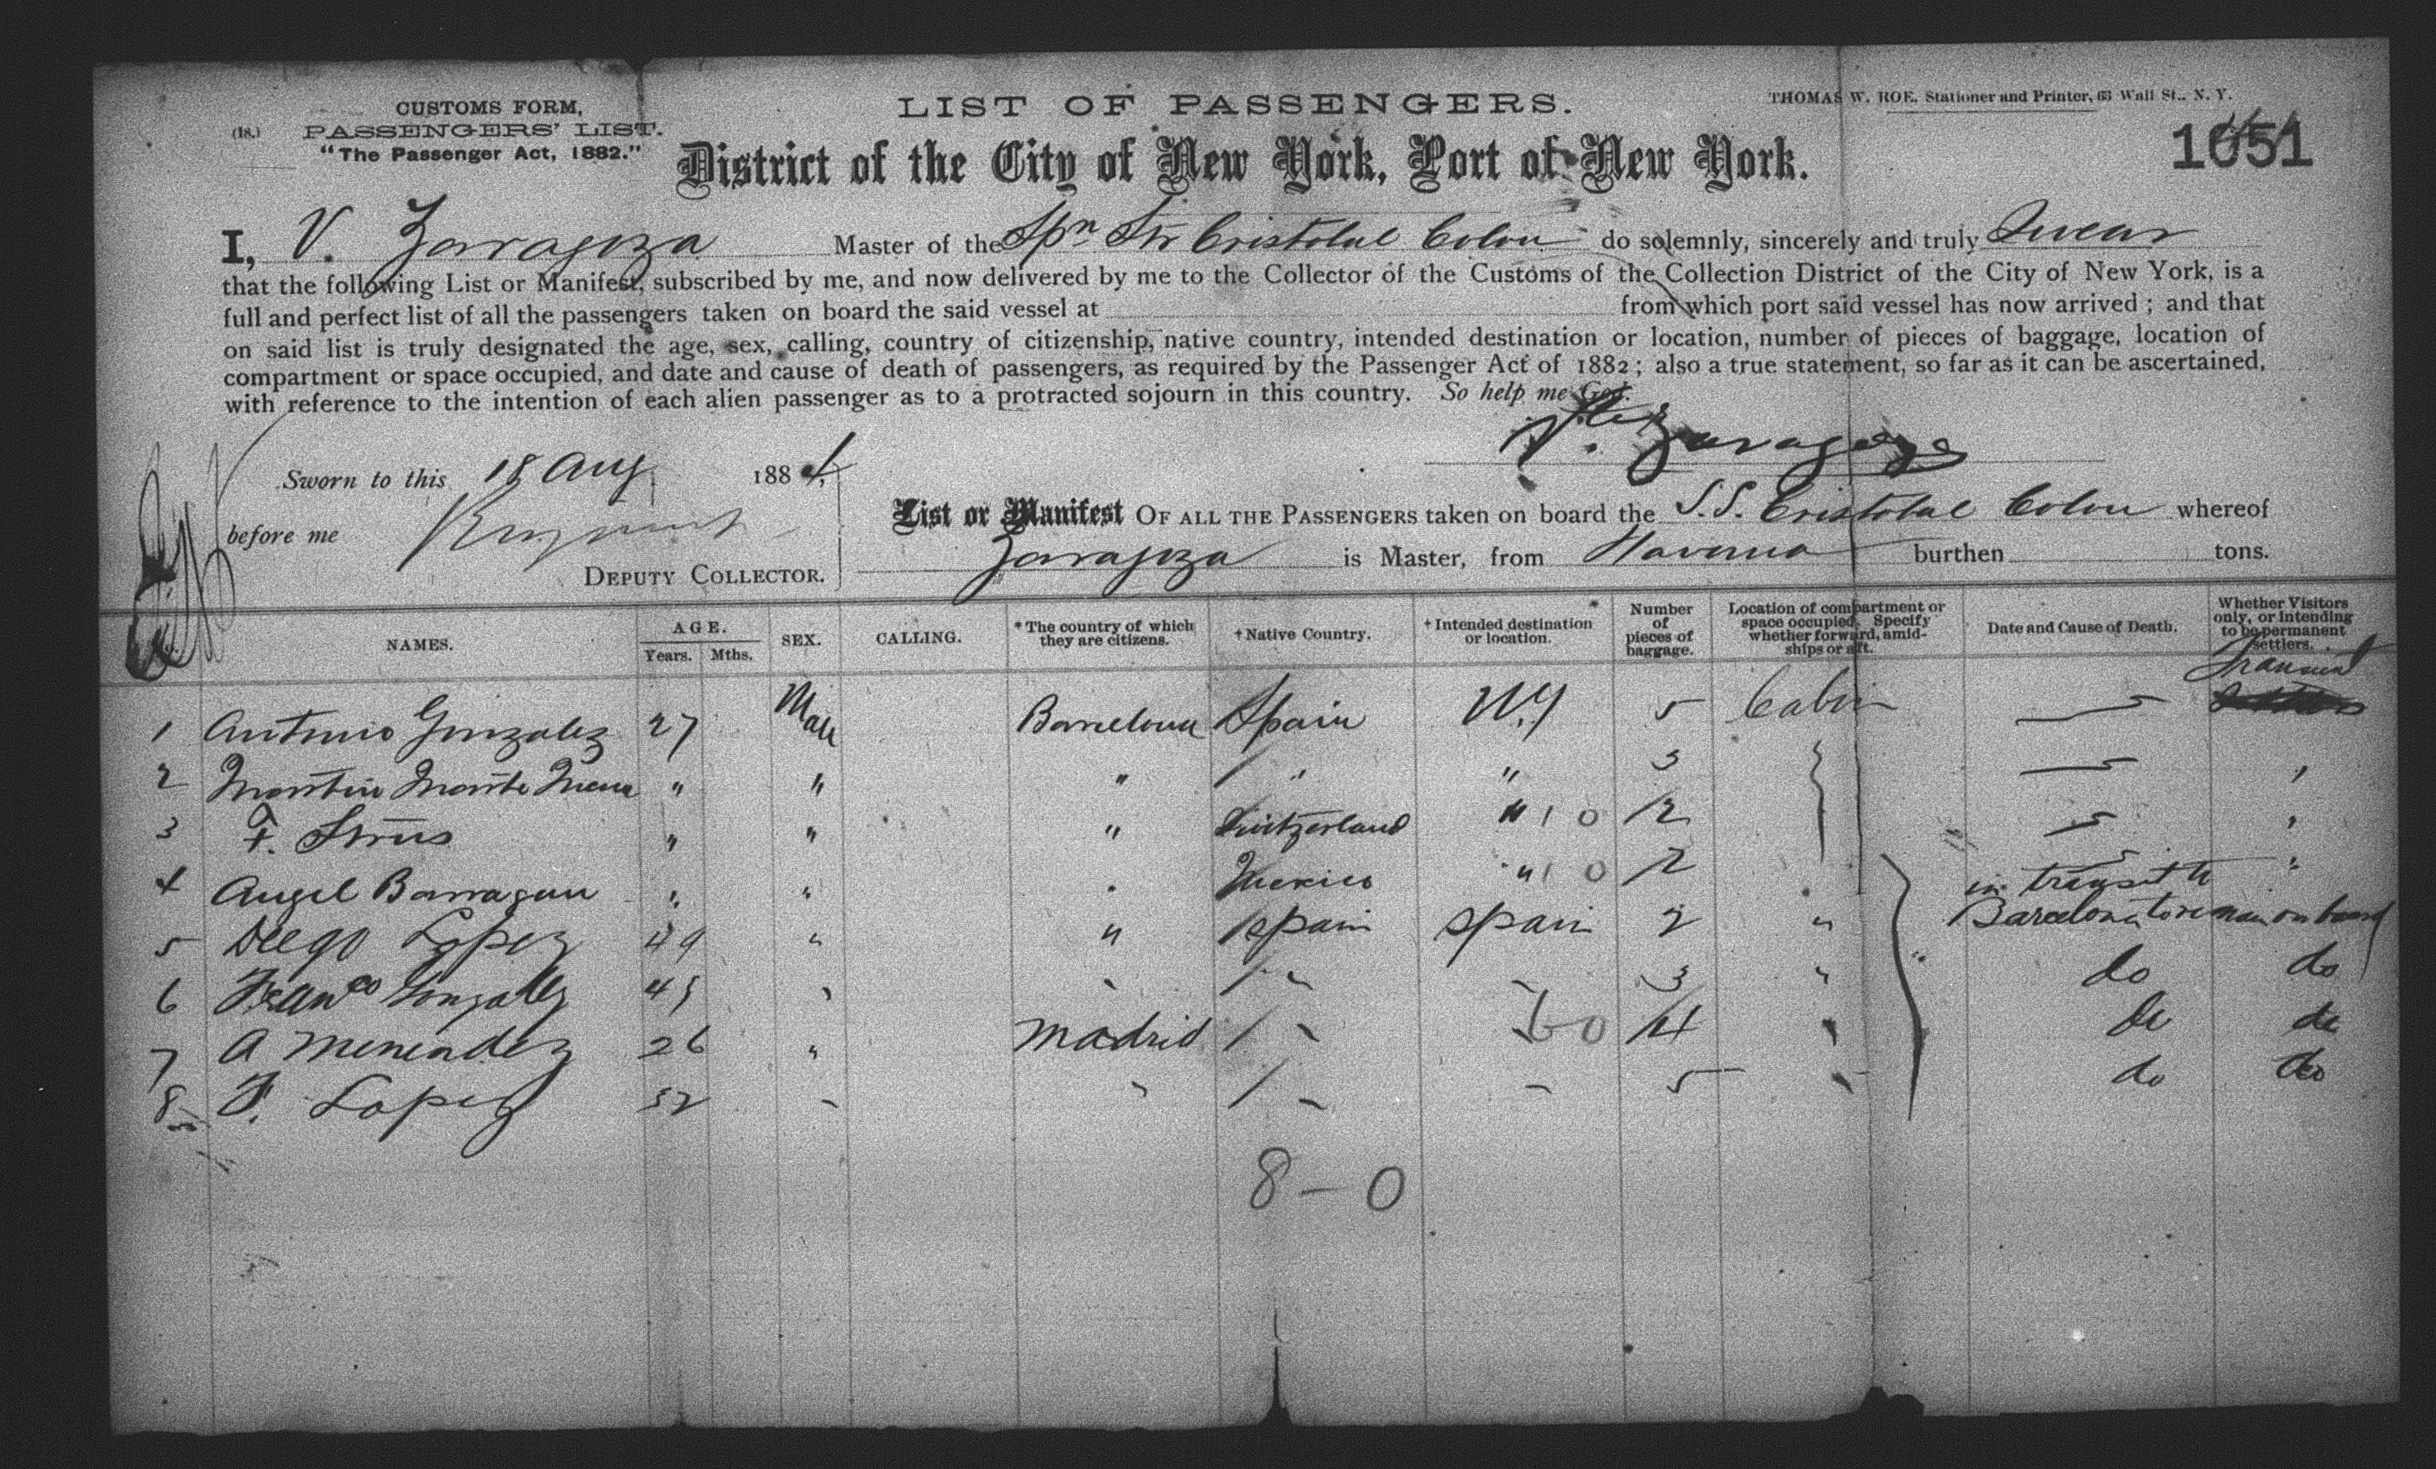 CUSTOMS FORM,
(18.) PASSENGERS' LIST.
"The Passenger Act, 1882."
LIST OF PASSENGERS.
THOMAS W. ROE, Stationer and Printer, 63 Wall St., N. Y.
District of the City of New York, Port of New York.
1051
I, V. Zaragoza Master of the Spn Str Cristobal Colon do solemnly, sincerely and truly Swear
that the following List or Manifest, subscribed by me, and now delivered by me to the Collector of the Customs of the Collection District of the City of New York, is a
full and perfect list of all the passengers taken on board the said vessel at from which port said vessel has now arrived; and that
on said list is truly designated the age, sex, calling, country of citizenship, native country, intended destination or location, number of pieces of baggage, location of
compartment or space occupied, and date and cause of death of passengers, as required by the Passenger Act of 1882; also a true statement, so far as it can be ascertained,
with reference to the intention of each alien passenger as to a protracted sojourn in this country. So help me God.
Zaragoza
Sworn to this 18 Aug 1884
before me
DEPUTY COLLECTOR.
List or Manifest OF ALL THE PASSENGERS taken on board the S.S. Cristobal Colon whereof
Zaragoza is Master, from Havana burthen tons.
NAMES. AGE. Years. Mths. SEX. CALLING. *The country of which they are citizens. †Native Country. †Intended destination or location. Number of pieces of baggage. Location of compartment or space occupied. Specify whether forward, amidships or aft. Date and Cause of Death. Whether Visitors only, or intending to be permanent settlers.
1 Antonio Gonzalez 27 Male Barcelona Spain N.Y 5 Cabin — Transient
2 Martin Monte " " " / " " 3 — "
3 F. " " " Switzerland " 10 / 2 — "
4 Angel Barragan " " " Mexico " 10 / 2 — "
5 Diego Lopez 49 " " / Spain Spain 2 " in transit to Barcelona to remain on board
6 Franco Gonzalez 45 " " / " " 3 " do do
7 A Menendez 26 " Madrid / " " / 4 " do do
8 F. Lopez 32 " " / " " 5 " do do
8 — 0